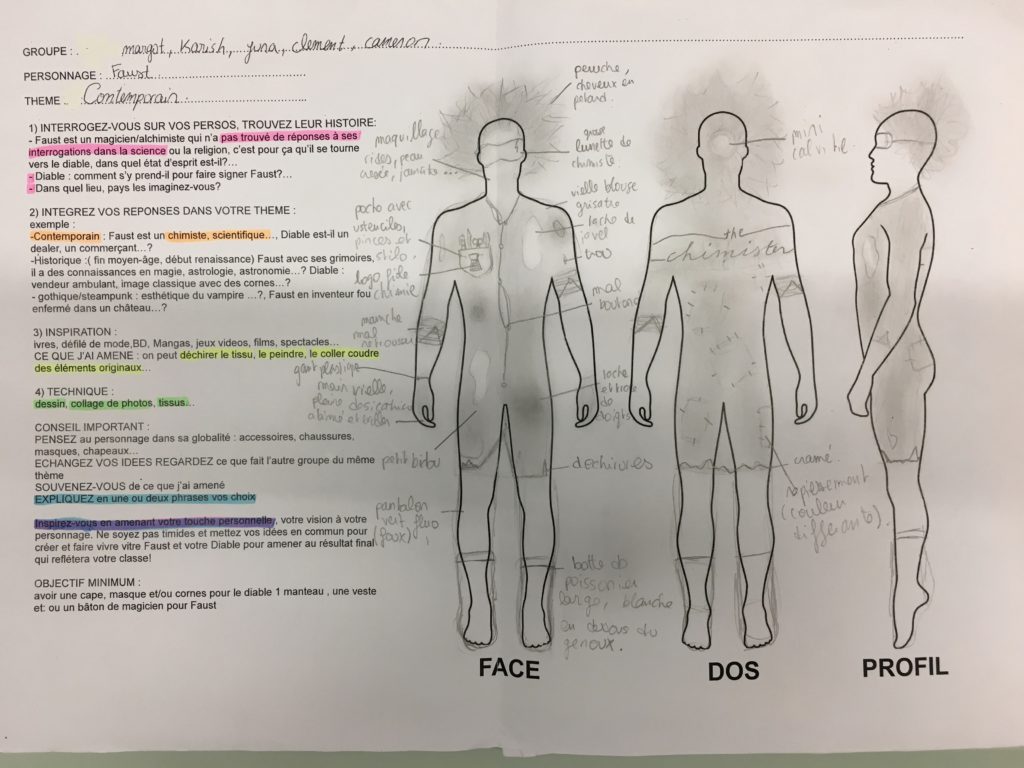 GROUPE : margot, Karish, yuna, clement, cameron
PERSONNAGE : Faust
THEME : Comtemporain
1) INTERROGEZ-VOUS SUR VOS PERSOS, TROUVEZ LEUR HISTOIRE:
- Faust est un magicien/alchimiste qui n'a pas trouvé de réponses à ses
interrogations dans la science ou la religion, c'est pour ça qu'il se tourne
vers le diable, dans quel état d'esprit est-il?…
- Diable : comment s'y prend-il pour faire signer Faust?…
- Dans quel lieu, pays les imaginez-vous?
2) INTEGREZ VOS REPONSES DANS VOTRE THEME :
exemple :
-Contemporain : Faust est un chimiste, scientifique…, Diable est-il un
dealer, un commerçant…?
-Historique :( fin moyen-âge, début renaissance) Faust avec ses grimoires,
il a des connaissances en magie, astrologie, astronomie…? Diable :
vendeur ambulant, image classique avec des cornes…?
- gothique/steampunk : esthétique du vampire …?, Faust en inventeur fou
enfermé dans un château…?
3) INSPIRATION :
ivres, défilé de mode,BD, Mangas, jeux videos, films, spectacles…
CE QUE J'AI AMENE : on peut déchirer le tissu, le peindre, le coller coudre
des éléments originaux…
4) TECHNIQUE :
dessin, collage de photos, tissus…
CONSEIL IMPORTANT :
PENSEZ au personnage dans sa globalité : accessoires, chaussures,
masques, chapeaux…
ECHANGEZ VOS IDEES REGARDEZ ce que fait l'autre groupe du même
thème
SOUVENEZ-VOUS de ce que j'ai amené
EXPLIQUEZ en une ou deux phrases vos choix
Inspirez-vous en amenant votre touche personnelle, votre vision à votre
personnage. Ne soyez pas timides et mettez vos idées en commun pour
créer et faire vivre vitre Faust et votre Diable pour amener au résultat final
qui reflétera votre classe!
OBJECTIF MINIMUM :
avoir une cape, masque et/ou cornes pour le diable 1 manteau , une veste
et: ou un bâton de magicien pour Faust
perruche,
cheveux en
petard.
maquillage
rides, peau
grosse
lunette de
chimiste.
vielle blouse
grisatre
poche avec
ustenciles,
pinces et
stilo,
logo
chimie
tache de
javel
trou
mal
boutonné
manche
mal
gant plastique
main vielle,
pleine de
tache
de
doigts
petit bidou
dechirures
pantalon
vert fluo
botte de
poissonier
large, blanche
en dessous du
genoux.
mini
calvitie.
the
chimister
cramé.
(couleur
differente).
FACE
DOS
PROFIL